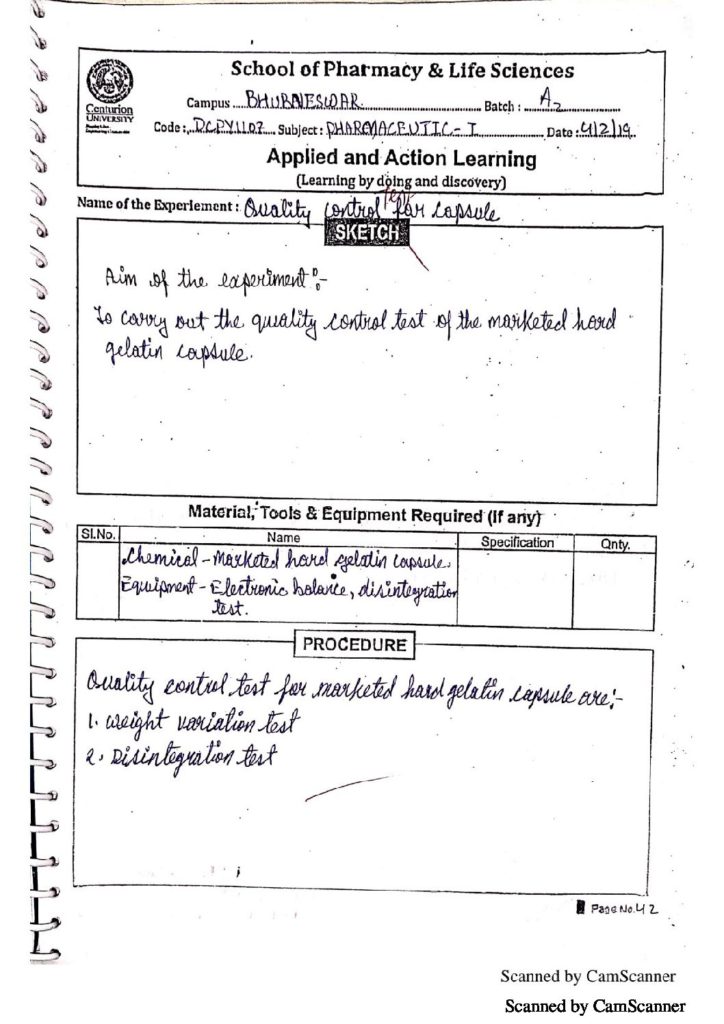 School of Pharmacy & Life Sciences
Centurion
UNIVERSITY
Campus ....BHUBNESWAR.................... Batch : ...A2....................
Code:..DCPY1107 Subject : PHARMACEUTIC-I ................ Date :4/2/19..
Applied and Action Learning
(Learning by doing and discovery)
Name of the Experiement : Quality control test for capsule
SKETCH
Aim of the experiment :-
To carry out the quality control test of the marketed hard
gelatin capsule.
Material, Tools & Equipment Required (If any)
Sl.No. Name Specification Qnty.
Chemical - Marketed hard gelatin capsule.
Equipment - Electronic balance, disintegration
test.
PROCEDURE
Quality control test for marketed hard gelatin capsule are:-
1. weight variation test
2. Disintegration test
Page No.42
Scanned by CamScanner
Scanned by CamScanner